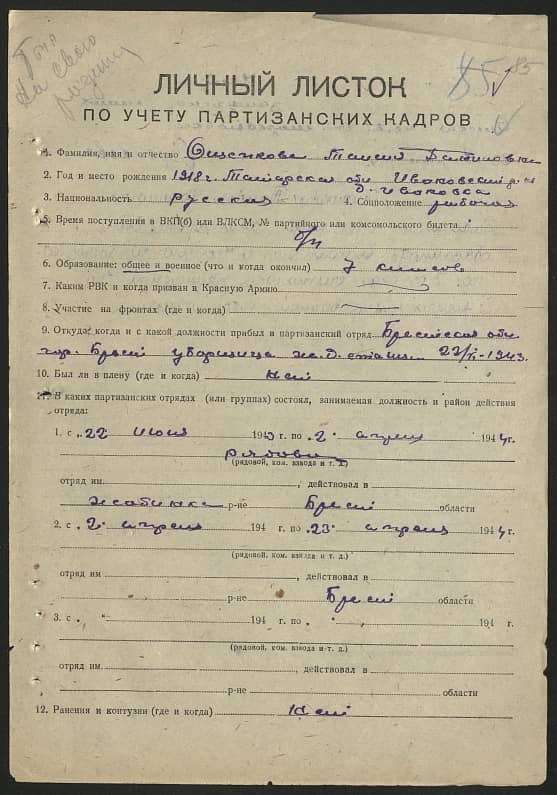 на свою
85 85
ЛИЧНЫЙ ЛИСТОК
ПО УЧЕТУ ПАРТИЗАНСКИХ КАДРОВ
1. Фамилия, имя и отчество
2. Год и место рождения 1918 г.
3. Национальность русская 4. Соцположение рабочая
5. Время поступления в ВКП(б) или ВЛКСМ, № партийного или комсомольского билета
б/п
6. Образование: общее и военное (что и когда окончил) 7 классов
7. Каким РВК и когда призван в Красную Армию
8. Участие на фронтах (где и когда)
9. Откуда, когда и с какой должности прибыл в партизанский отряд Брестская обл.
гор. Брест уборщица ж.д. станции 1943
10. Был ли в плену (где и когда) нет
11. В каких партизанских отрядах (или группах) состоял, занимаемая должность и район действия
отряда:
1. с „22 июня 1943 г. по „2 апреля 1944 г.
рядовой
(рядовой, ком. взвода и т. д.)
отряд им. , действовал в
Жабинка р-не Брест области
2. с „2 апреля 194 г. по „23 апреля 1944 г.
(рядовой, ком. взвода и т. д.)
отряд им , действовал в
р-не Брест области
3. с „ 194 г. по „ 194 г.
(рядовой, ком. взвода и т. д.)
отряд им. , действовал в
р-не области
12. Ранения и контузии (где и когда) нет